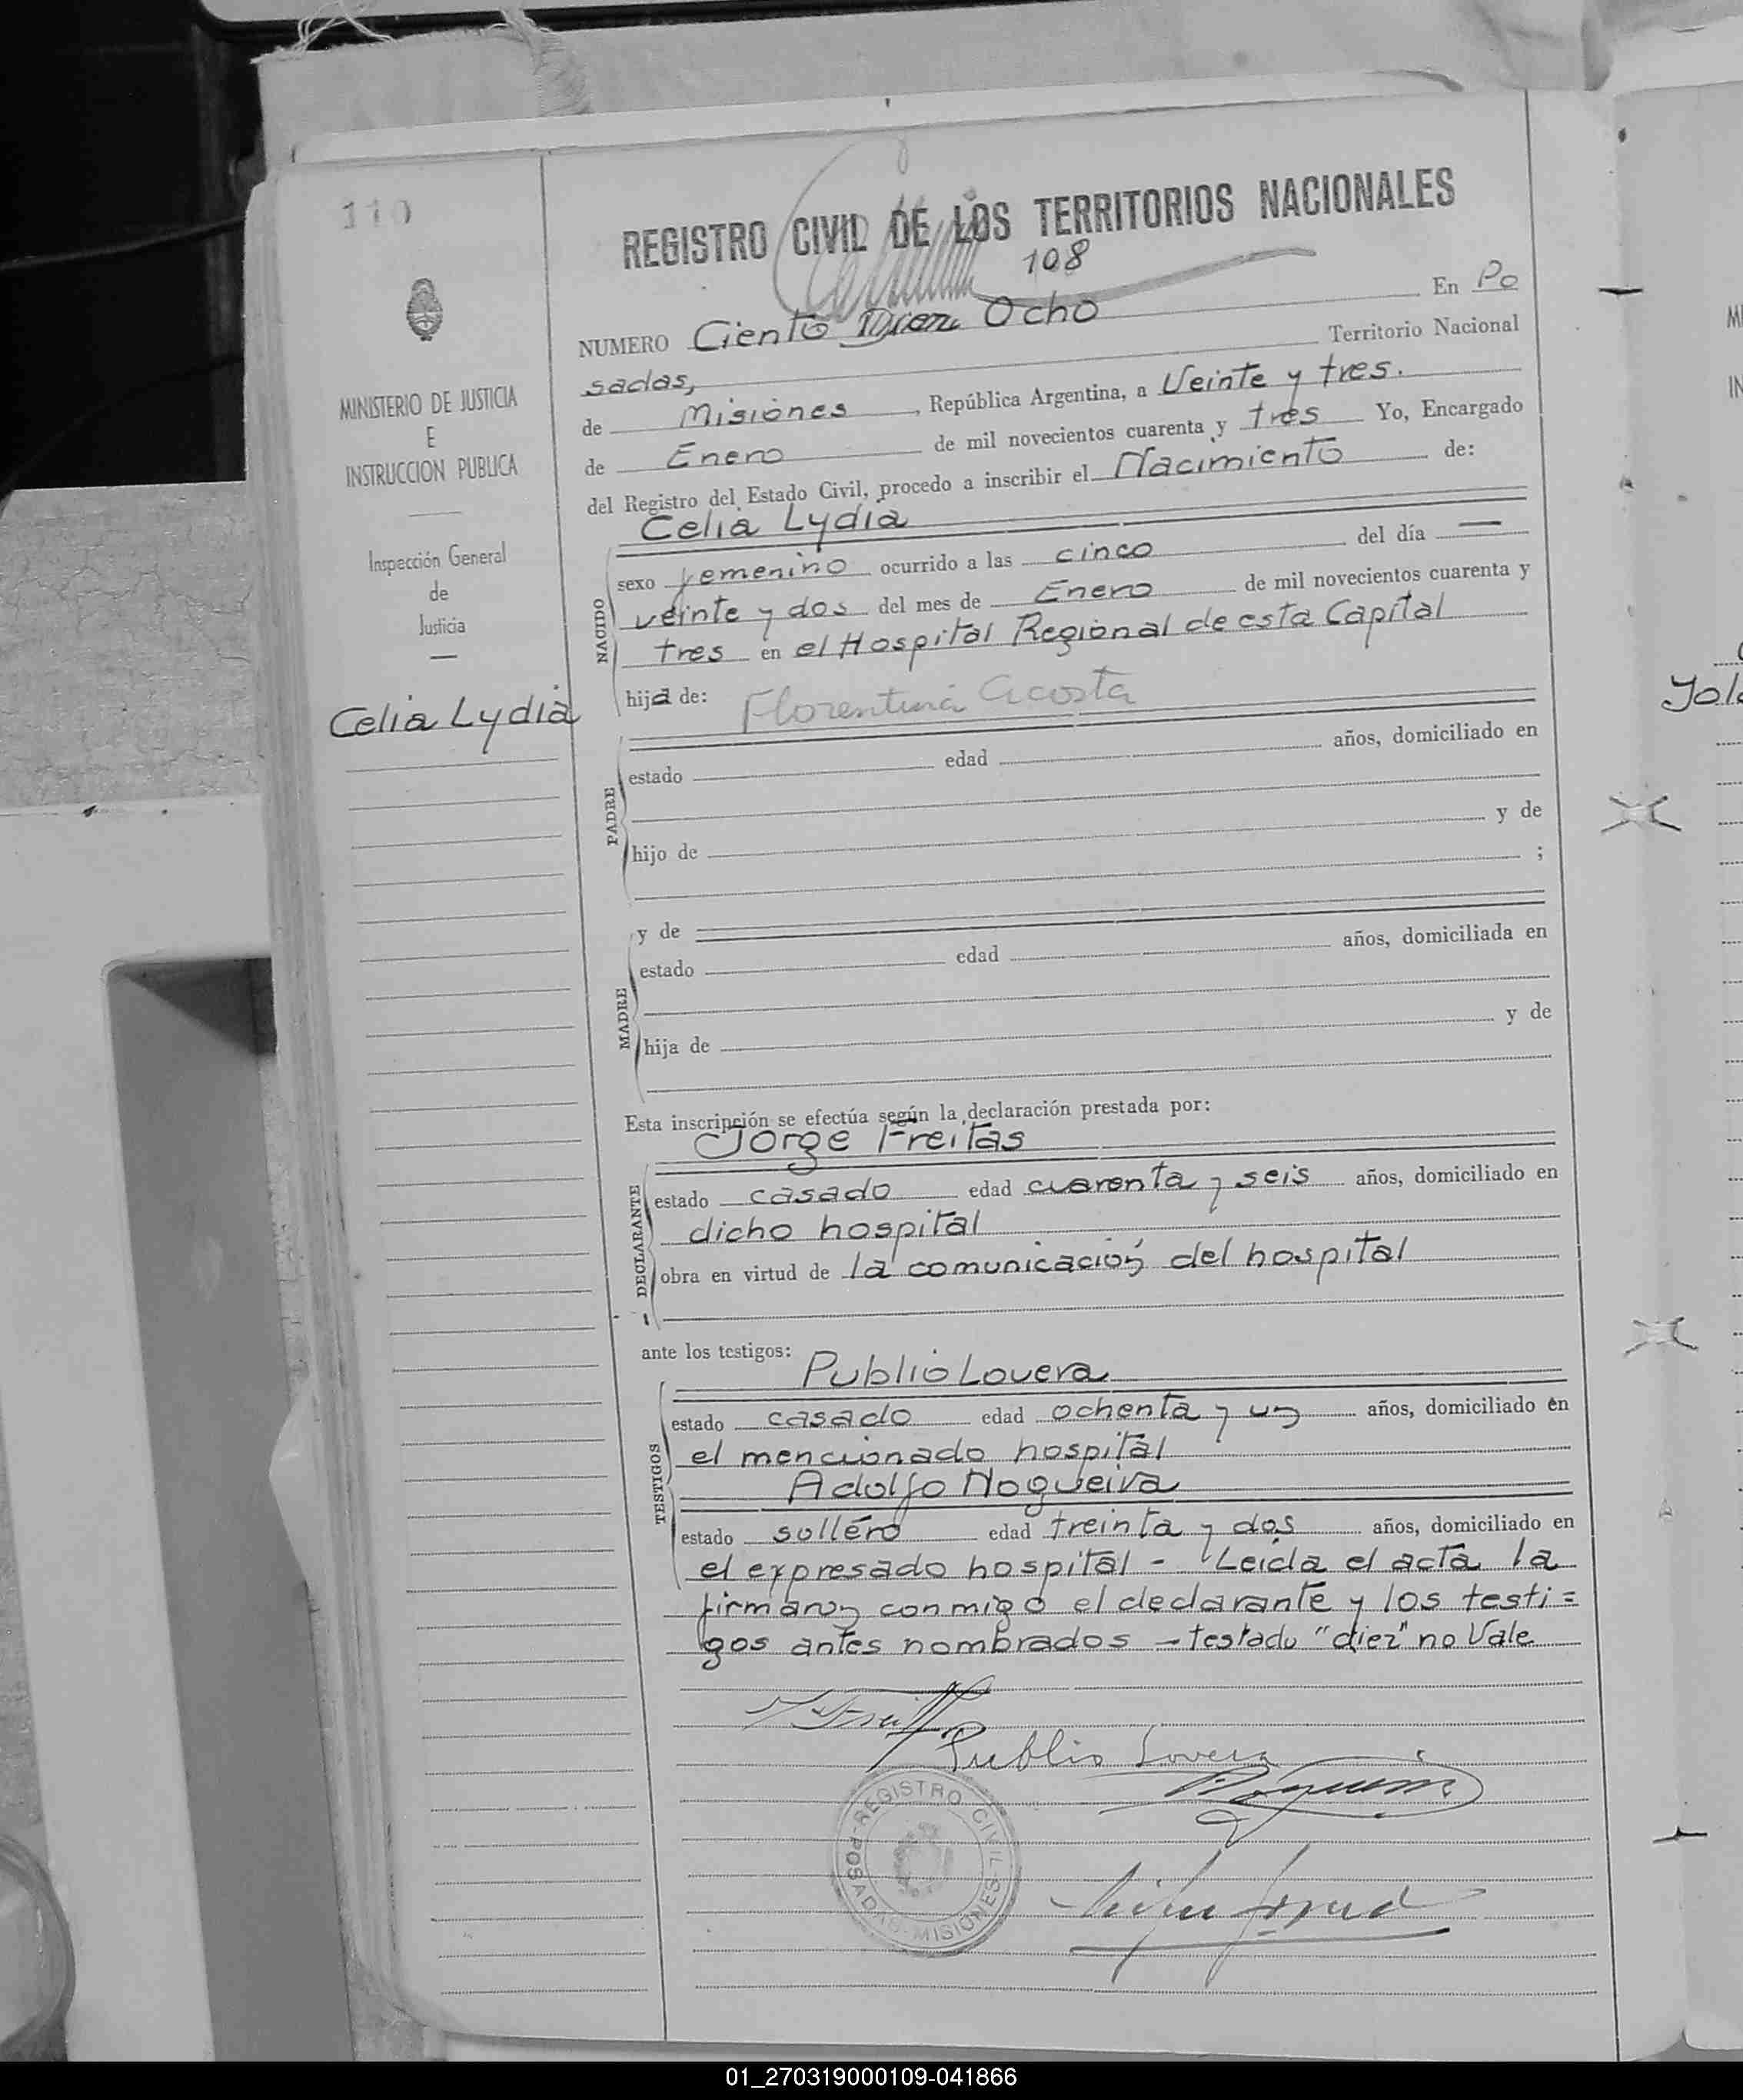 110
REGISTRO CIVIL DE LOS TERRITORIOS NACIONALES
108
NUMERO Ciento Diez Ocho En Po
sadas, Territorio Nacional
de Misiones, República Argentina, a Veinte y tres.
de Enero de mil novecientos cuarenta y tres Yo, Encargado
del Registro del Estado Civil, procedo a inscribir el Nacimiento de:
Celia Lydia
sexo femenino ocurrido a las cinco del día —
veinte y dos del mes de Enero de mil novecientos cuarenta y
tres en el Hospital Regional de esta Capital
hija de: Florentina Acosta
NACIDO
MINISTERIO DE JUSTICIA
E
INSTRUCCION PUBLICA
Inspección General
de
Justicia
Celia Lydia
estado edad años, domiciliado en
hijo de y de
;
PADRE
y de
estado edad años, domiciliada en
hija de y de
MADRE
Esta inscripción se efectúa según la declaración prestada por:
Jorge Freitas
estado casado edad cuarenta y seis años, domiciliado en
dicho hospital
obra en virtud de la comunicación del hospital
DECLARANTE
ante los testigos:
Publio Lovera
estado casado edad ochenta y un años, domiciliado en
el mencionado hospital
Adolfo Nogueira
estado solléro edad treinta y dos años, domiciliado en
el expresado hospital - Leída el acta la
firmaron conmigo el declarante y los testi=
gos antes nombrados - testado "diez" no Vale
TESTIGOS
Publio Lovera
REGISTRO CIVIL
POSADAS - MISIONES
Yol
01_270319000109-041866